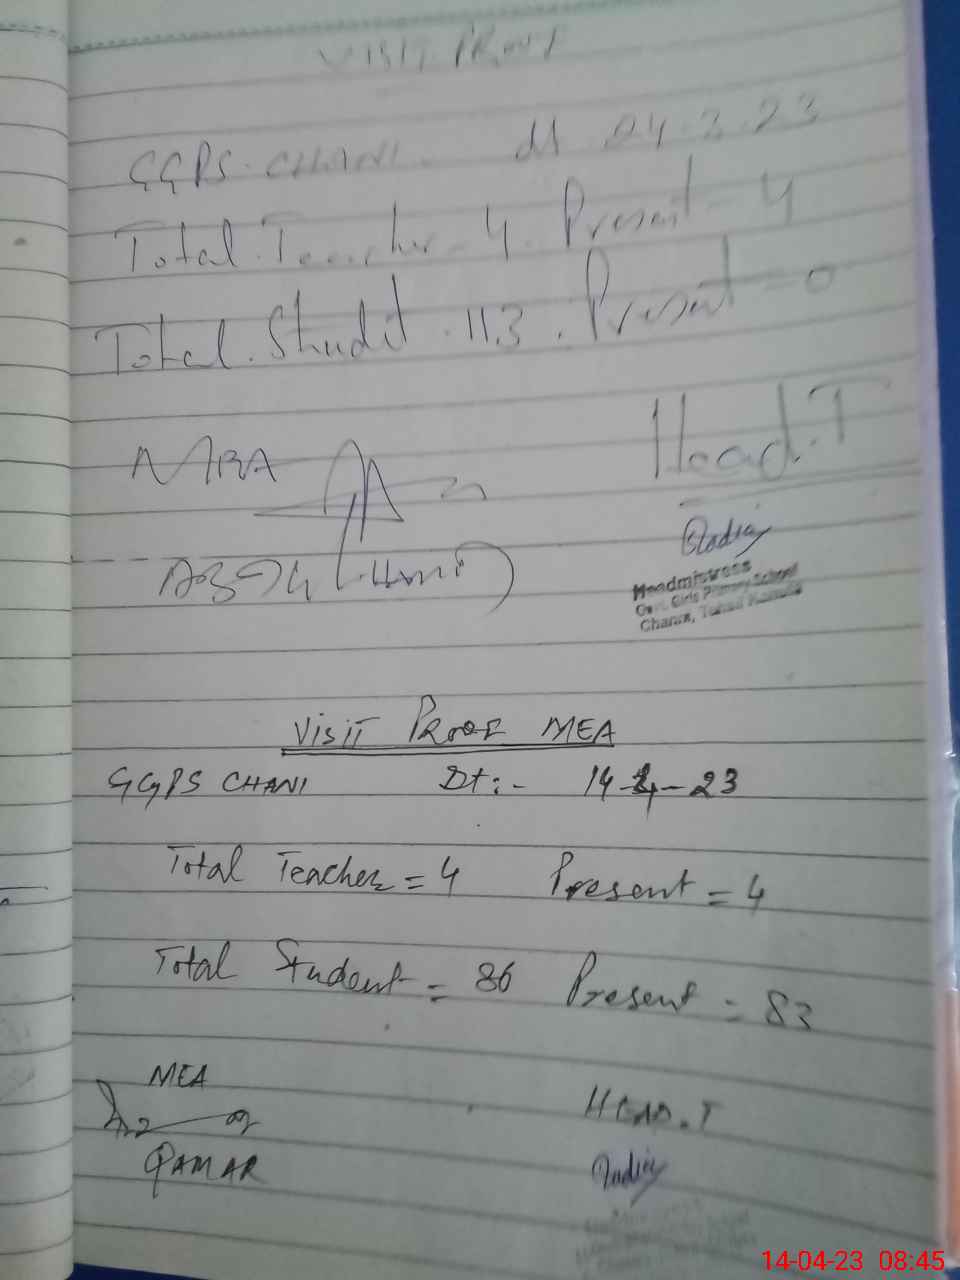 VISIT PROOF
GGPS. CHANI. dt 04.3.23
Total. Teacher - 4. Present - 4
Total. Studet. 113. Present - 0
Head.T
Headmistress
Govt. Girls Primary School
Visit Proof MEA
GGPS CHANI Dt:- 14-4-23
Total Teacher = 4 Present = 4
Total Student = 86 Present = 83
MEA
HEAD.T
QAMAR
14-04-23 08:45